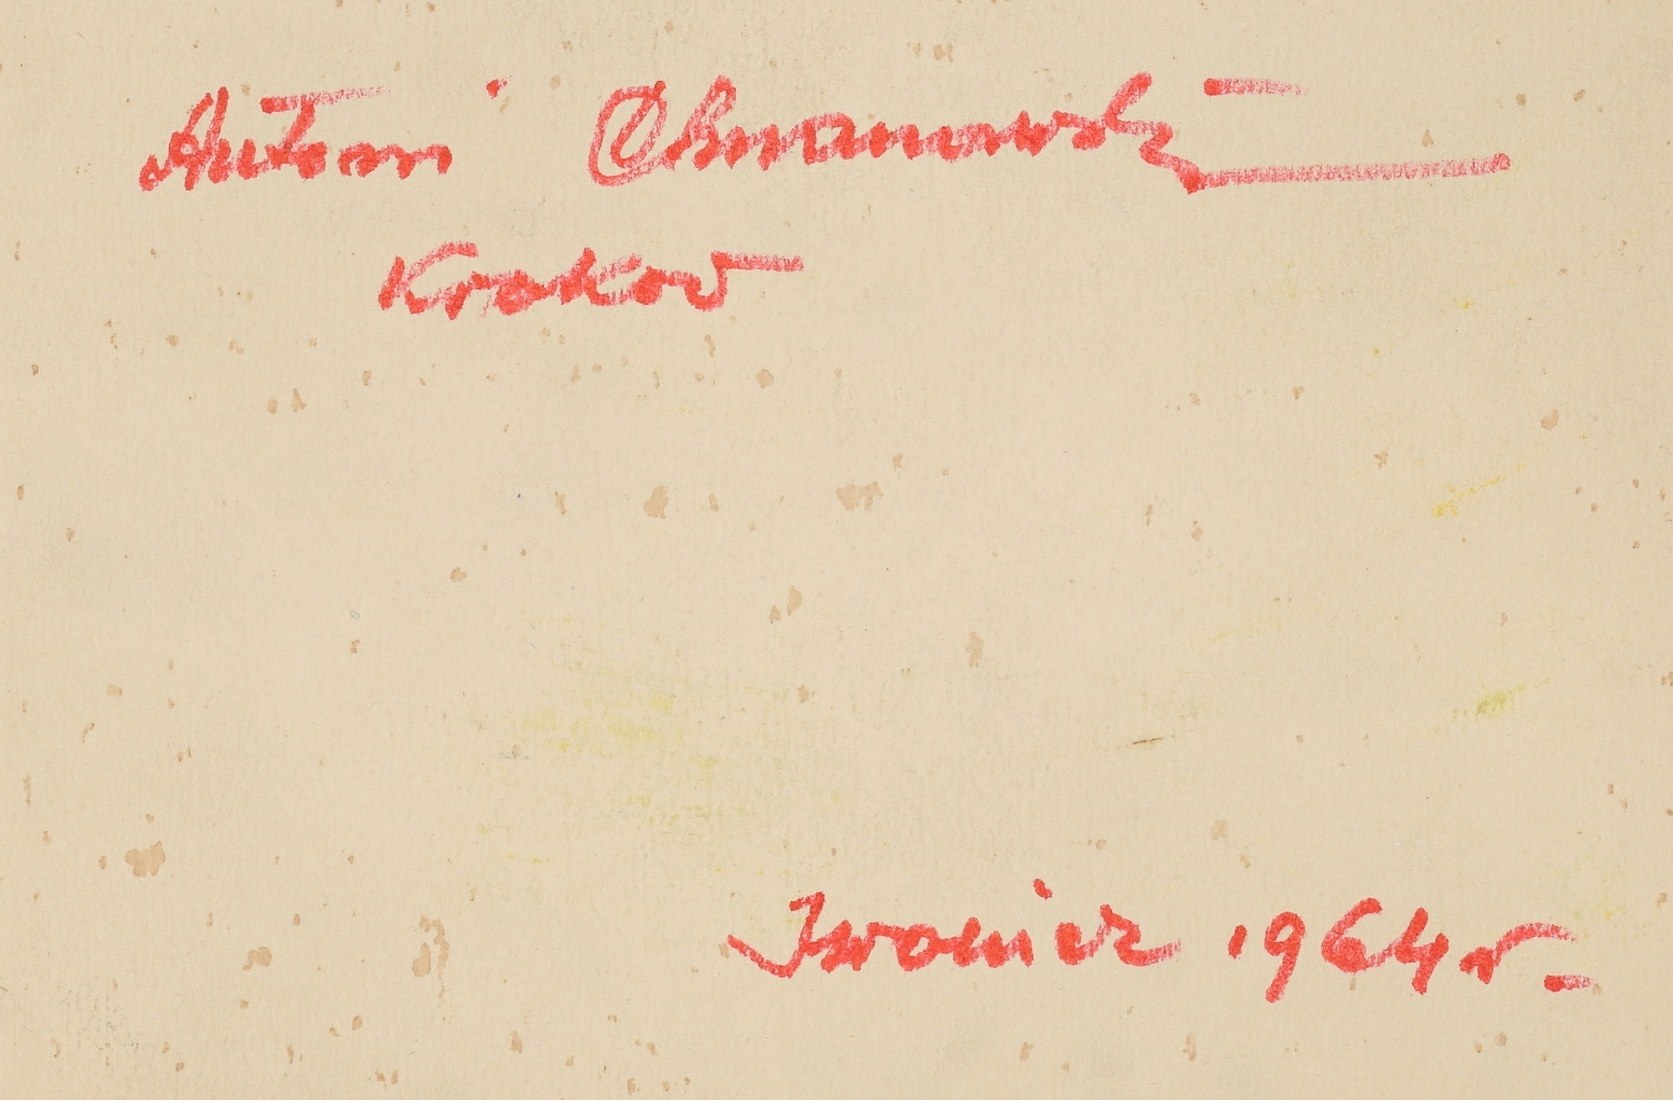 Antoni Chrzanowski
Krakow
Iwonicz 1964 r.